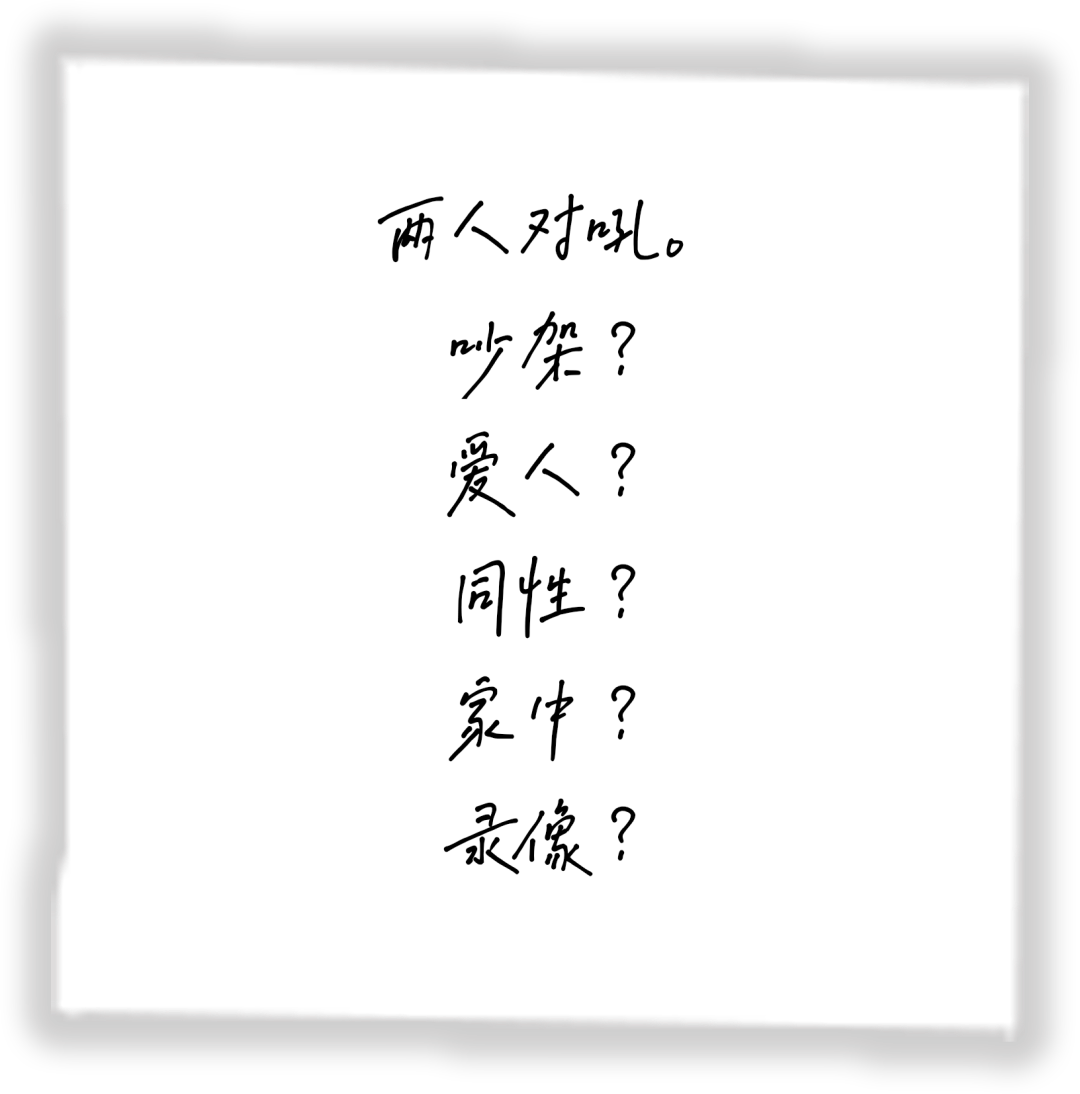 两人对吼。
吵架？
爱人？
同性？
家中？
录像？